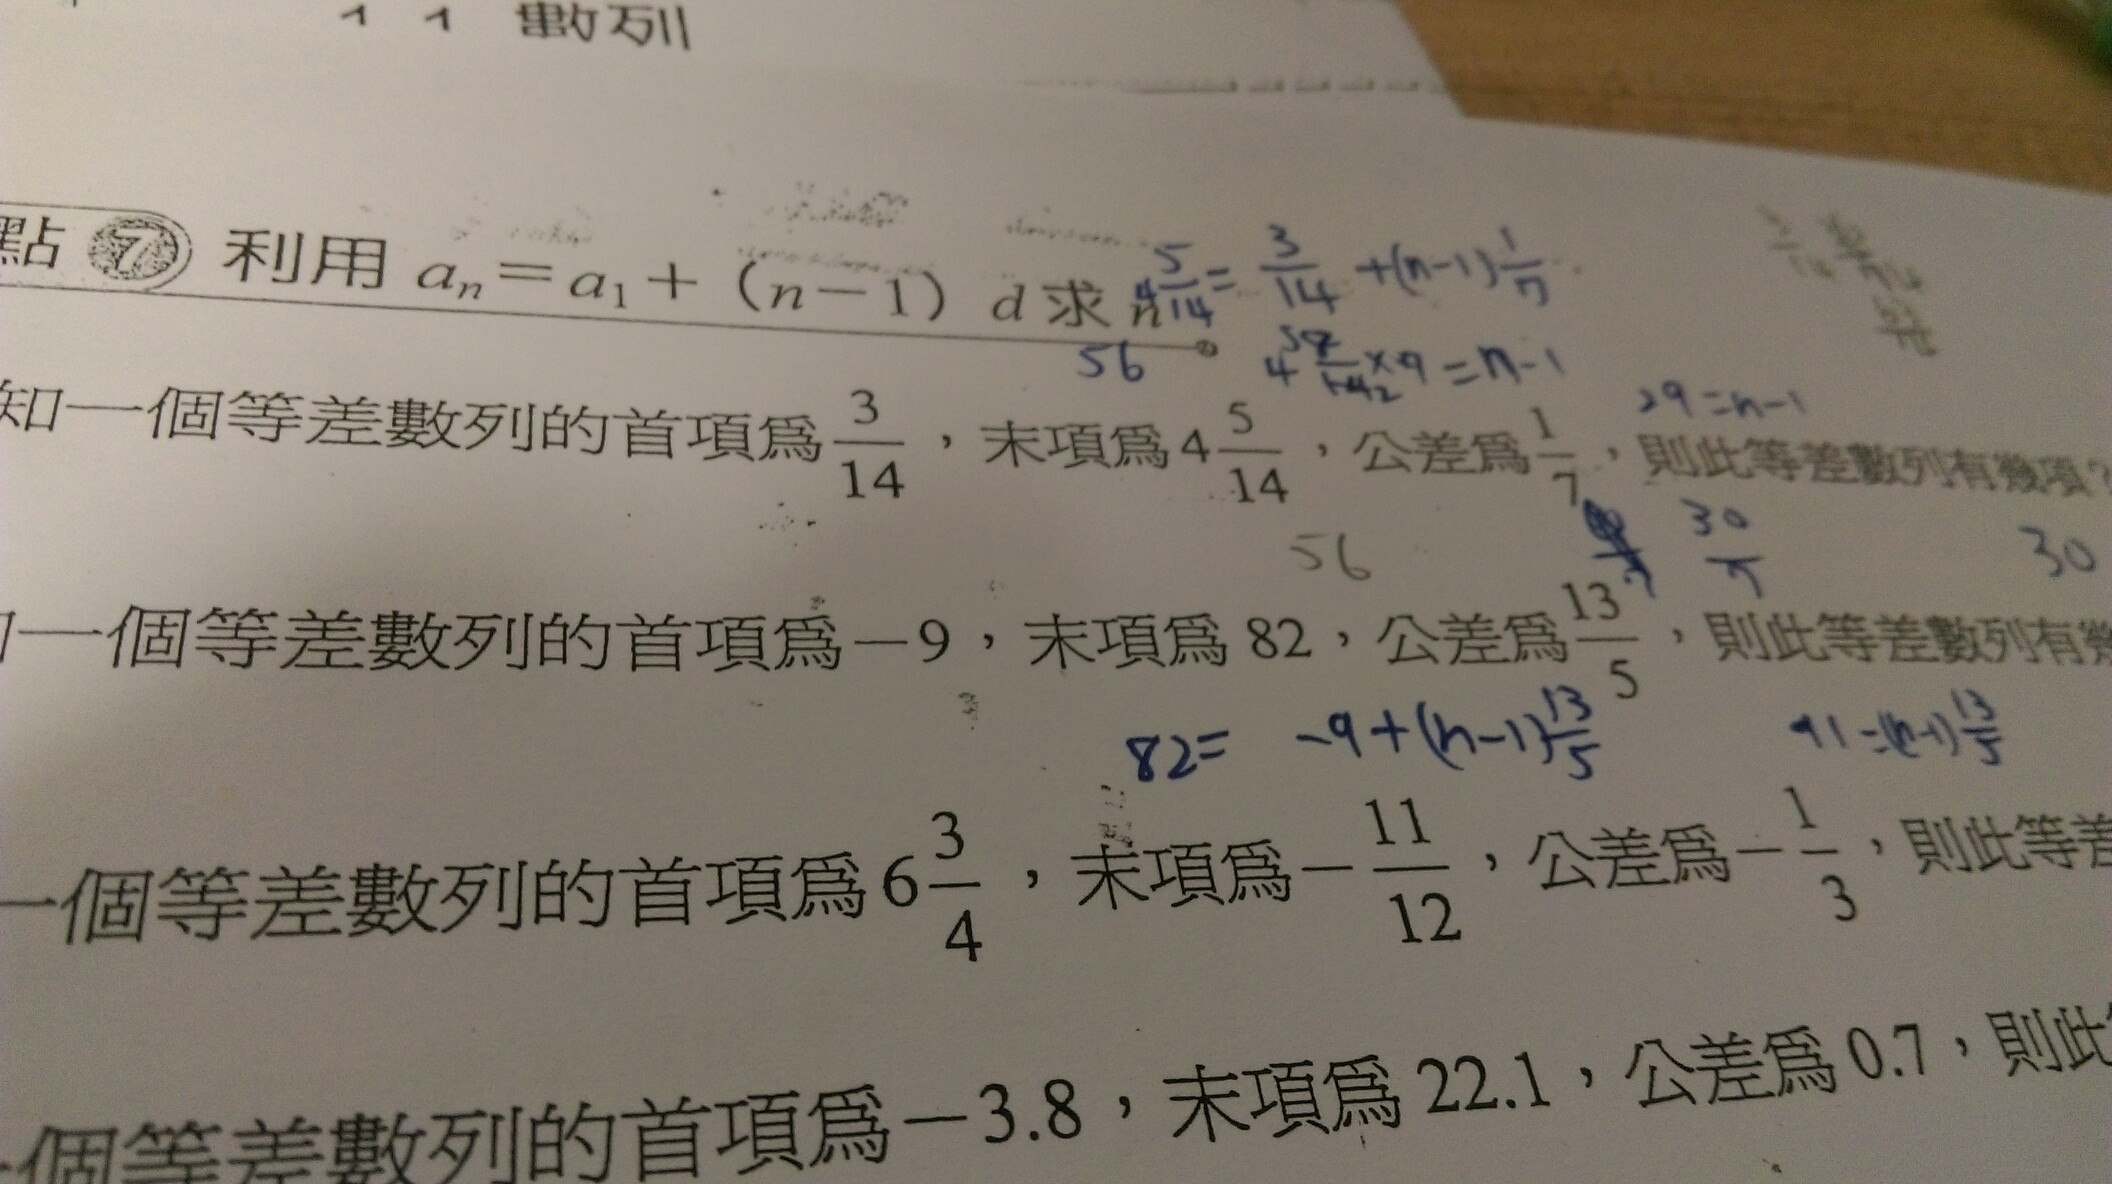 數列
點 7 利用 aₙ=a₁+（n−1）d 求 n
4 5/14 = 3/14 +(n-1) 1/7
56
29=n-1
知一個等差數列的首項爲 3/14，末項爲 4 5/14，公差爲 1/7，則此等差數列有幾項？
56
30/7
30
一個等差數列的首項爲−9，末項爲 82，公差爲 13/5，則此等差數列有幾
82= -9+(n-1) 13/5
91=(n-1) 13/5
一個等差數列的首項爲 6 3/4，末項爲− 11/12，公差爲− 1/3，則此等差
個等差數列的首項爲−3.8，末項爲 22.1，公差爲 0.7，則此